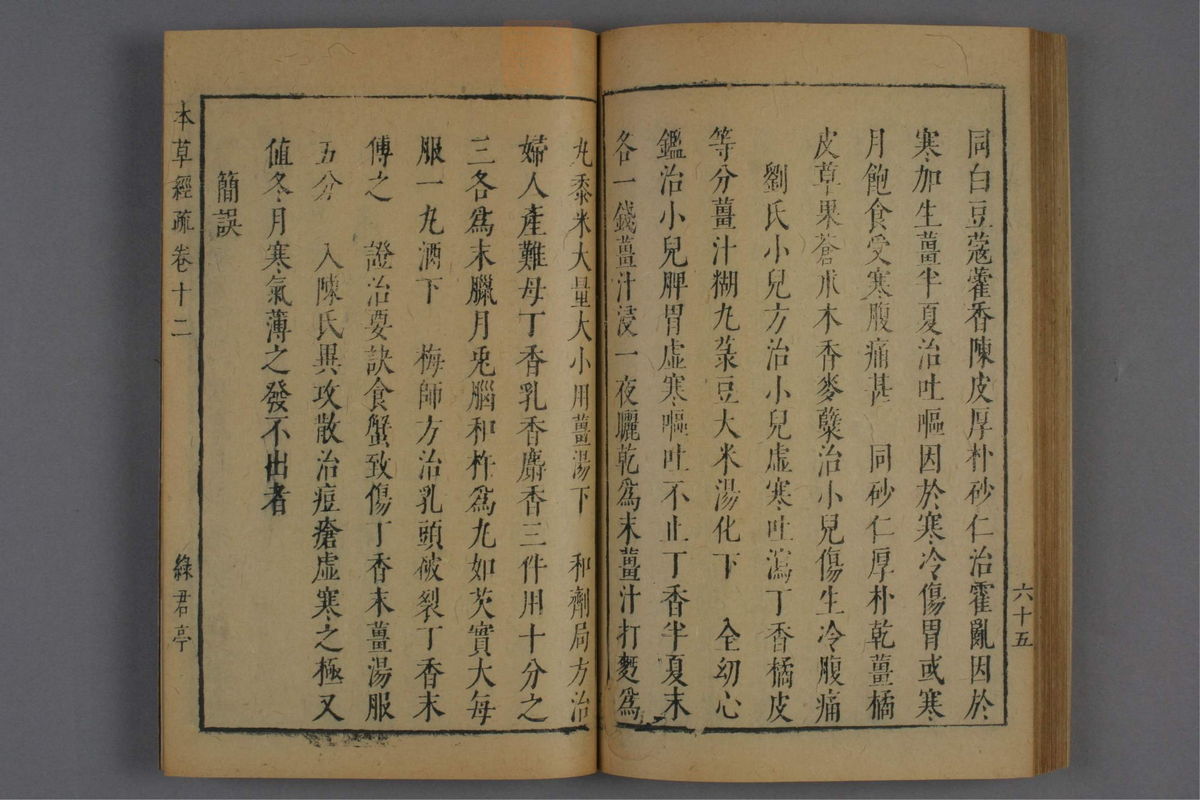 六十五
同白豆蔻藿香陳皮厚朴砂仁治霍亂因於
寒加生薑半夏治吐嘔因於寒冷傷胃或寒
月飽食受寒腹痛甚　同砂仁厚朴乾薑橘
皮草果蒼朮木香麥糵治小兒傷生冷腹痛
劉氏小兒方治小兒虛寒吐瀉丁香橘皮
等分薑汁糊丸菉豆大米湯化下　全幼心
鑑治小兒脾胃虛寒嘔吐不止丁香半夏末
各一錢薑汁浸一夜曬乾爲末薑汁打麪爲
丸黍米大量大小用薑湯下　和劑局方治
婦人產難母丁香乳香麝香三件用十分之
三各爲末臘月兎腦和杵爲丸如芡實大每
服一丸酒下　梅師方治乳頭破裂丁香末
傅之　證治要訣食蟹致傷丁香末薑湯服
五分　入陳氏異攻散治痘瘡虛寒之極又
值冬月寒氣薄之發不出者
簡誤
本草經疏卷十二
綠君亭